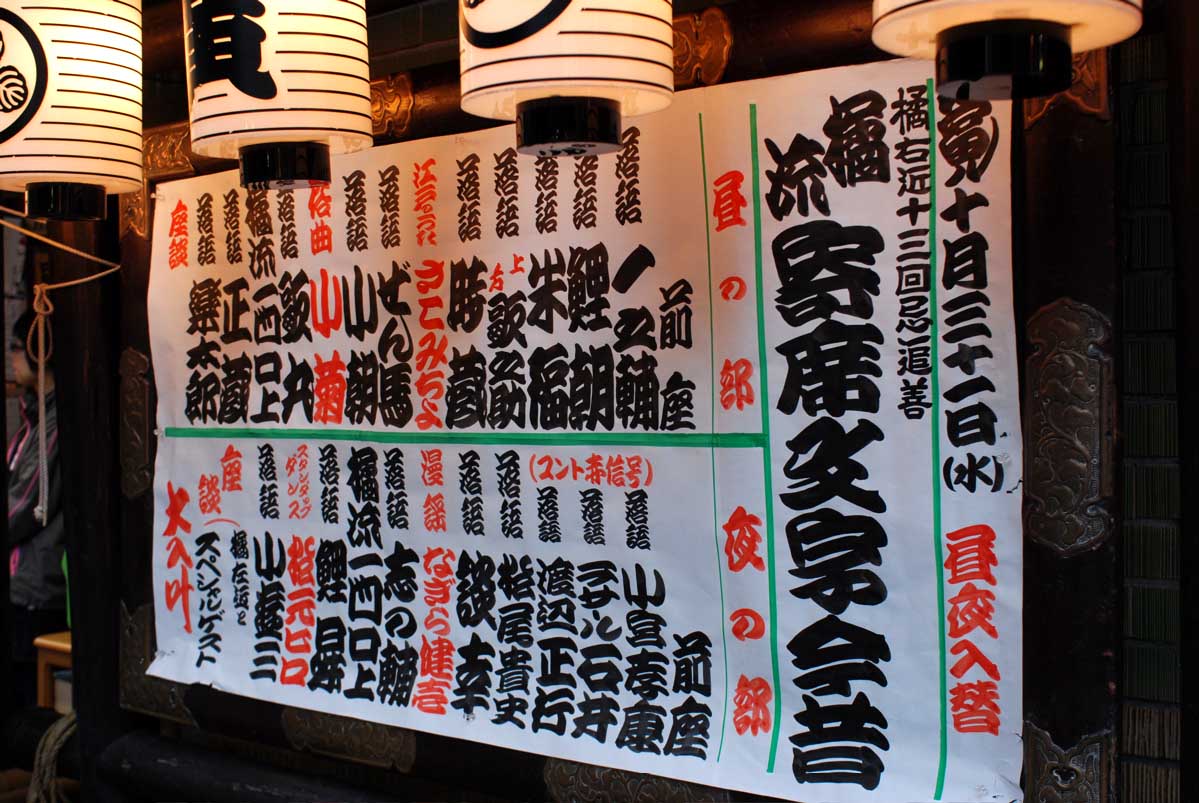 十月三十一日(水) 昼夜入替
橘右近十三回忌追善
橘流 寄席文字今昔
昼の部
前座
落語 一之輔
落語 鯉朝
落語 米福
落語 上方 歌之助
落語 勝蔵
江戸うた さこみちよ
落語 ぜん馬
落語 小朝
俗曲 小菊
落語 歌九
橘流 一門口上
落語 正蔵
落語 楽太郎
座談
夜の部
前座
(コント赤信号)
落語 小宮孝康
落語 ラサール石井
落語 渡辺正行
落語 松尾貴史
落語 談幸
漫謡 なぎら健壱
落語 志の輔
橘流 一門口上
落語 鯉昇
スタンダップダンス
落語 小遊三
座談
橘左近と
スペシャルゲスト
大入叶